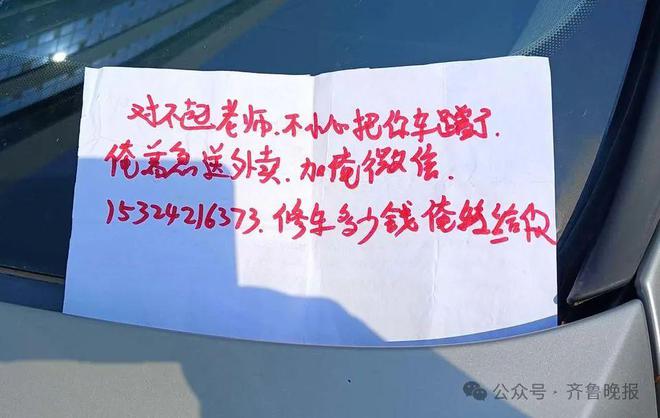 对不起老师.不小心把你车蹭了.
俺着急送外卖.加俺微信.
15324216373.修车多少钱俺转给你
公众号·齐鲁晚报